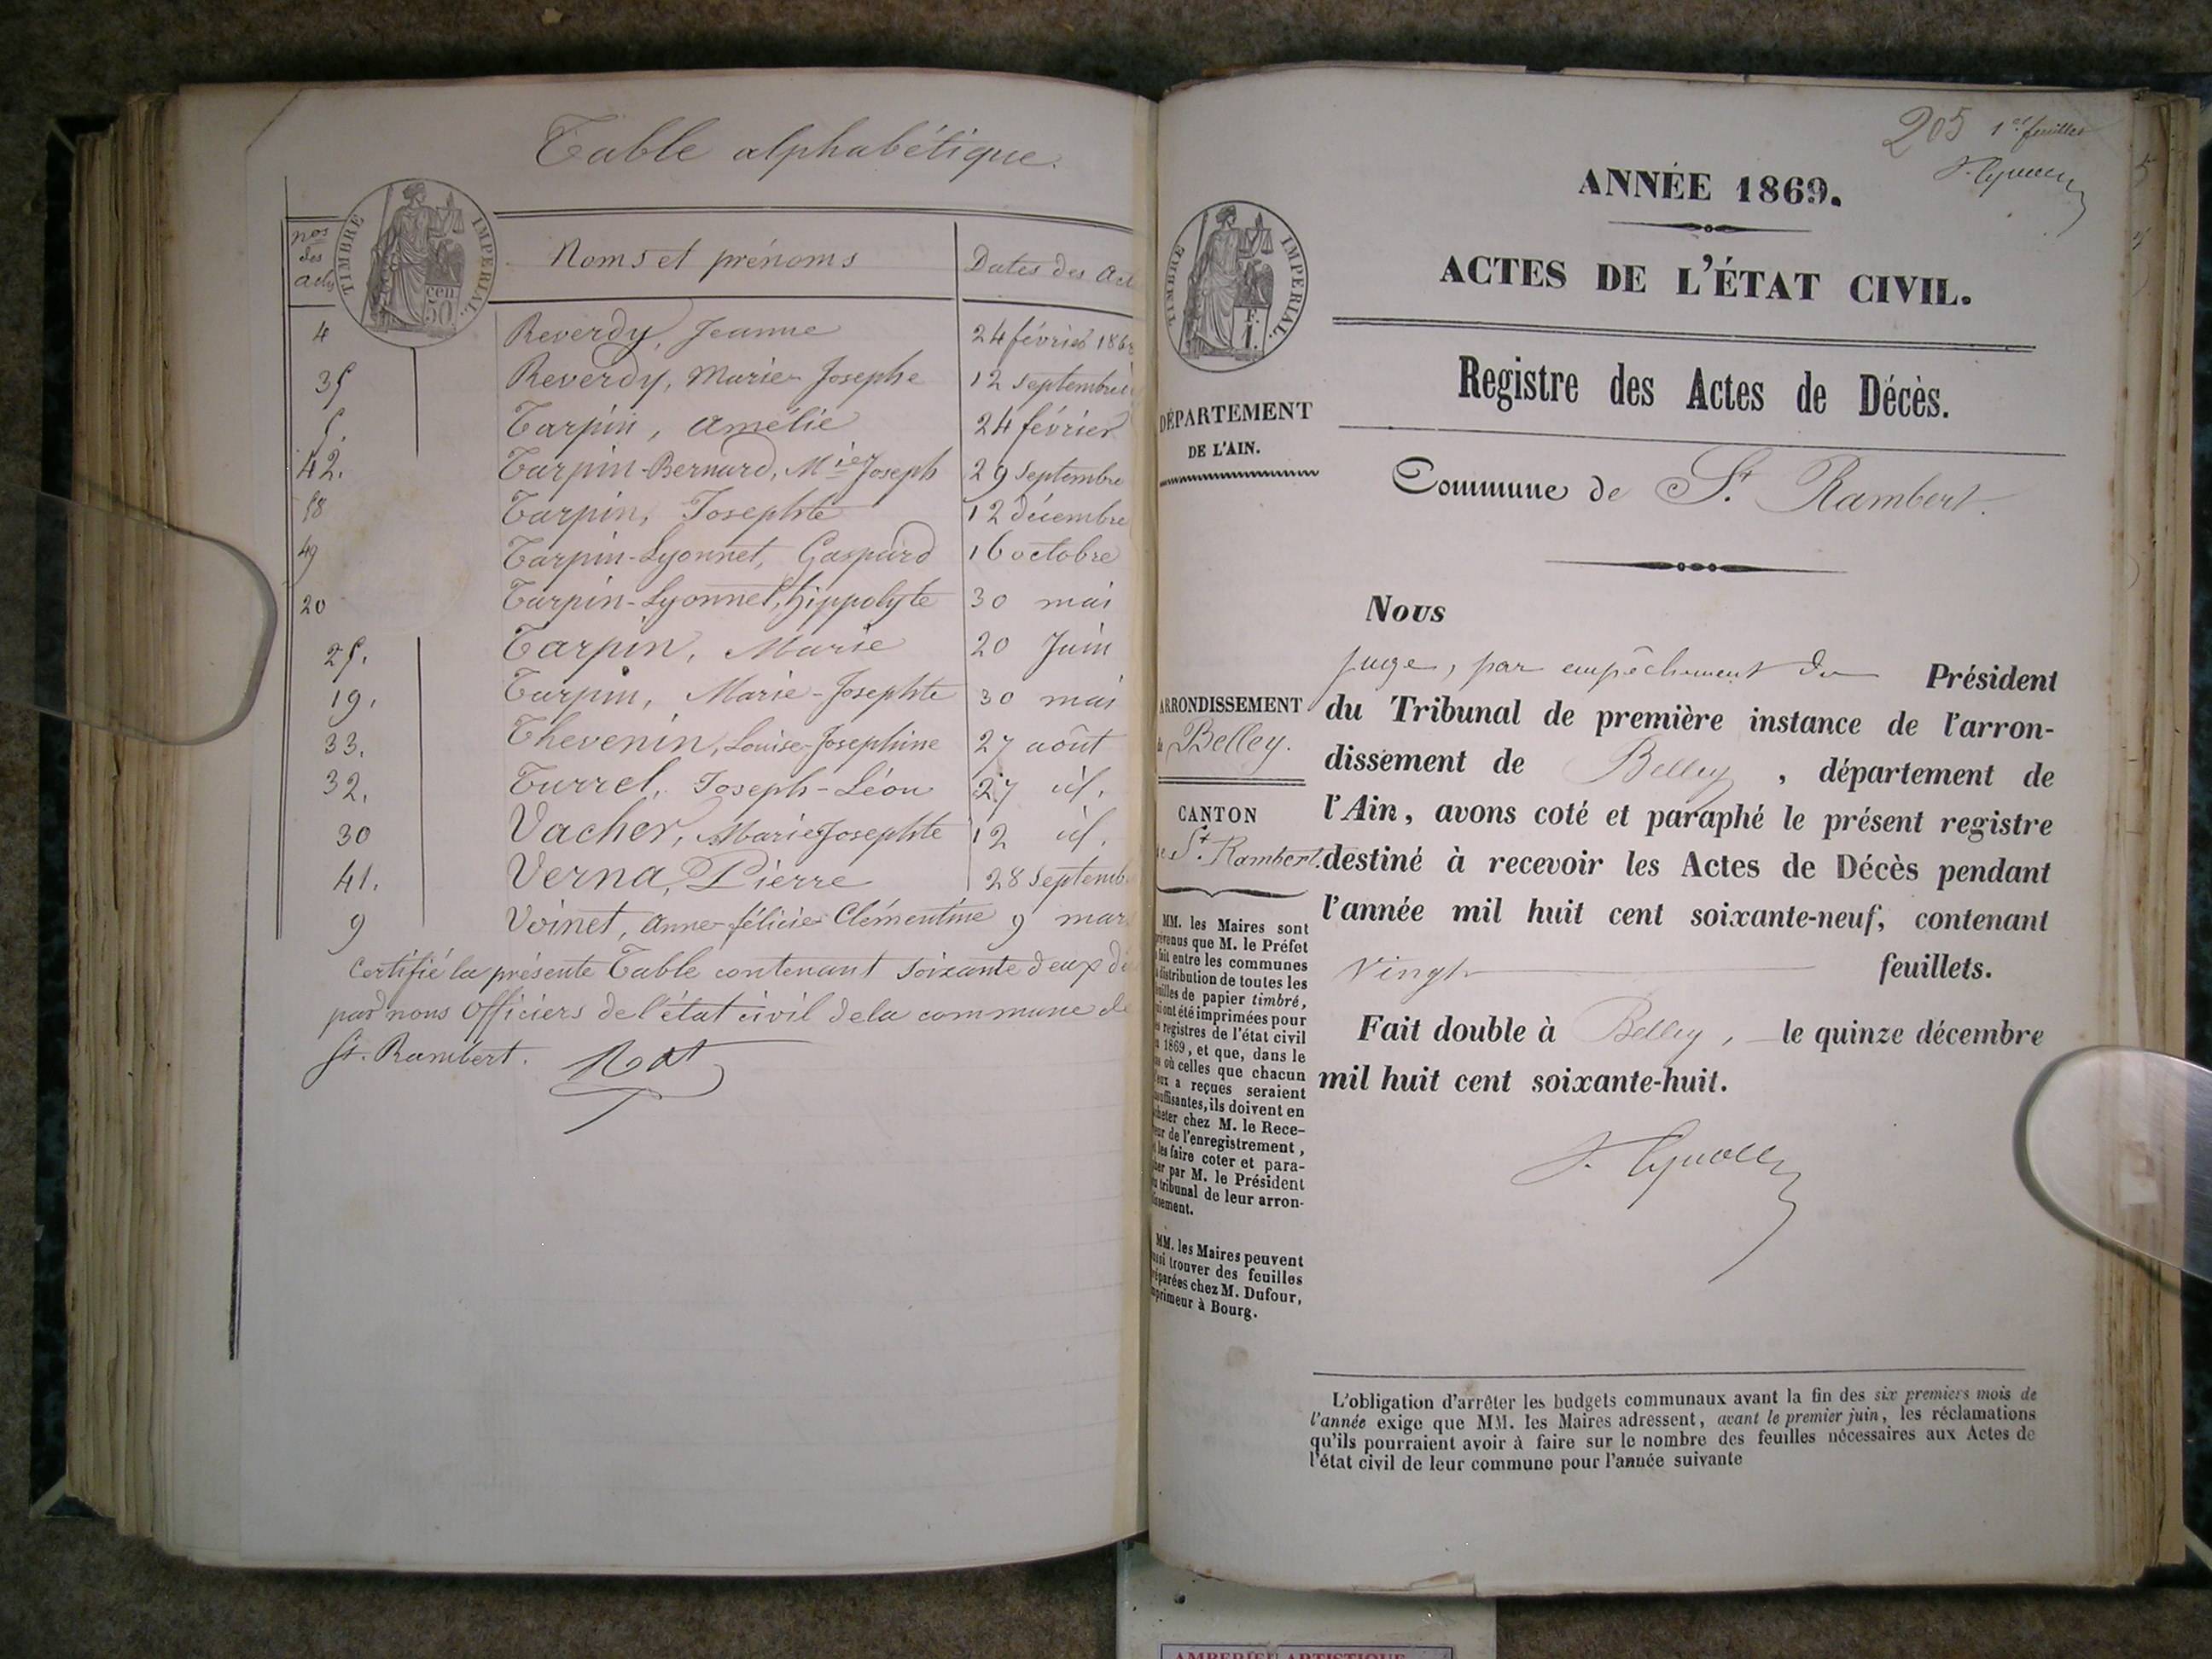 Table alphabétique.
nos des actes
Noms et prénoms
Dates des act
TIMBRE IMPÉRIAL.
50 cen
4 Reverdy, Jeanne 24 février 1868
35 Reverdy, Marie Josephe 12 septembre
5. Tarpin, Amélie 24 février
42. Tarpin-Bernard, Mie Joseph 29 Septembre
58 Tarpin, Josephte 12 Décembre
49 Tarpin-Lyonnet, Gaspard 16 octobre
20 Tarpin-Lyonnet, hippolyte 30 mai
25. Tarpin, Marie 20 Juin
19. Tarpin, Marie-Josephte 30 mai
33. Thevenin, Louise-Josephine 27 août
32. Turrel, Joseph-Léon 27 id.
30 Vacher, Marie Josephte 12 id.
41. Verna, Pierre 28 Septemb
9 Voinet, Anne félicie Clémentine 9 mar
Certifié la présente Table contenant soixante deux
par nous Officiers de l'état civil de la commune de
St. Rambert.
205 1er feuillet
ANNÉE 1869.
ACTES DE L'ÉTAT CIVIL.
TIMBRE IMPÉRIAL.
F. 1.
Registre des Actes de Décès.
DÉPARTEMENT
DE L'AIN.
Commune de St. Rambert.
ARRONDISSEMENT
Belley.
CANTON
St. Rambert.
MM. les Maires sont
prévenus que M. le Préfet
fait entre les communes
distribution de toutes les
feuilles de papier timbré,
ont été imprimées pour
registres de l'état civil
1869, et que, dans le
où celles que chacun
a reçues seraient
insuffisantes, ils doivent en
acheter chez M. le Rece-
de l'enregistrement,
les faire coter et para-
pher par M. le Président
tribunal de leur arron-
dissement.
MM. les Maires peuvent
aussi trouver des feuilles
préparées chez M. Dufour,
imprimeur à Bourg.
Nous
Juge, par empêchement du Président
du Tribunal de première instance de l'arron-
dissement de Belley, département de
l'Ain, avons coté et paraphé le présent registre
destiné à recevoir les Actes de Décès pendant
l'année mil huit cent soixante-neuf, contenant
Vingt feuillets.
Fait double à Belley, le quinze décembre
mil huit cent soixante-huit.
L'obligation d'arrêter les budgets communaux avant la fin des six premiers mois de
l'année exige que MM. les Maires adressent, avant le premier juin, les réclamations
qu'ils pourraient avoir à faire sur le nombre des feuilles nécessaires aux Actes de
l'état civil de leur commune pour l'année suivante
AMBERIEU ARTISTIQUE